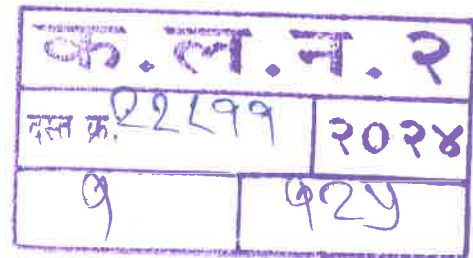 क.ल.न.२
दस्त क्र. २२८११ २०२४
१ १२५